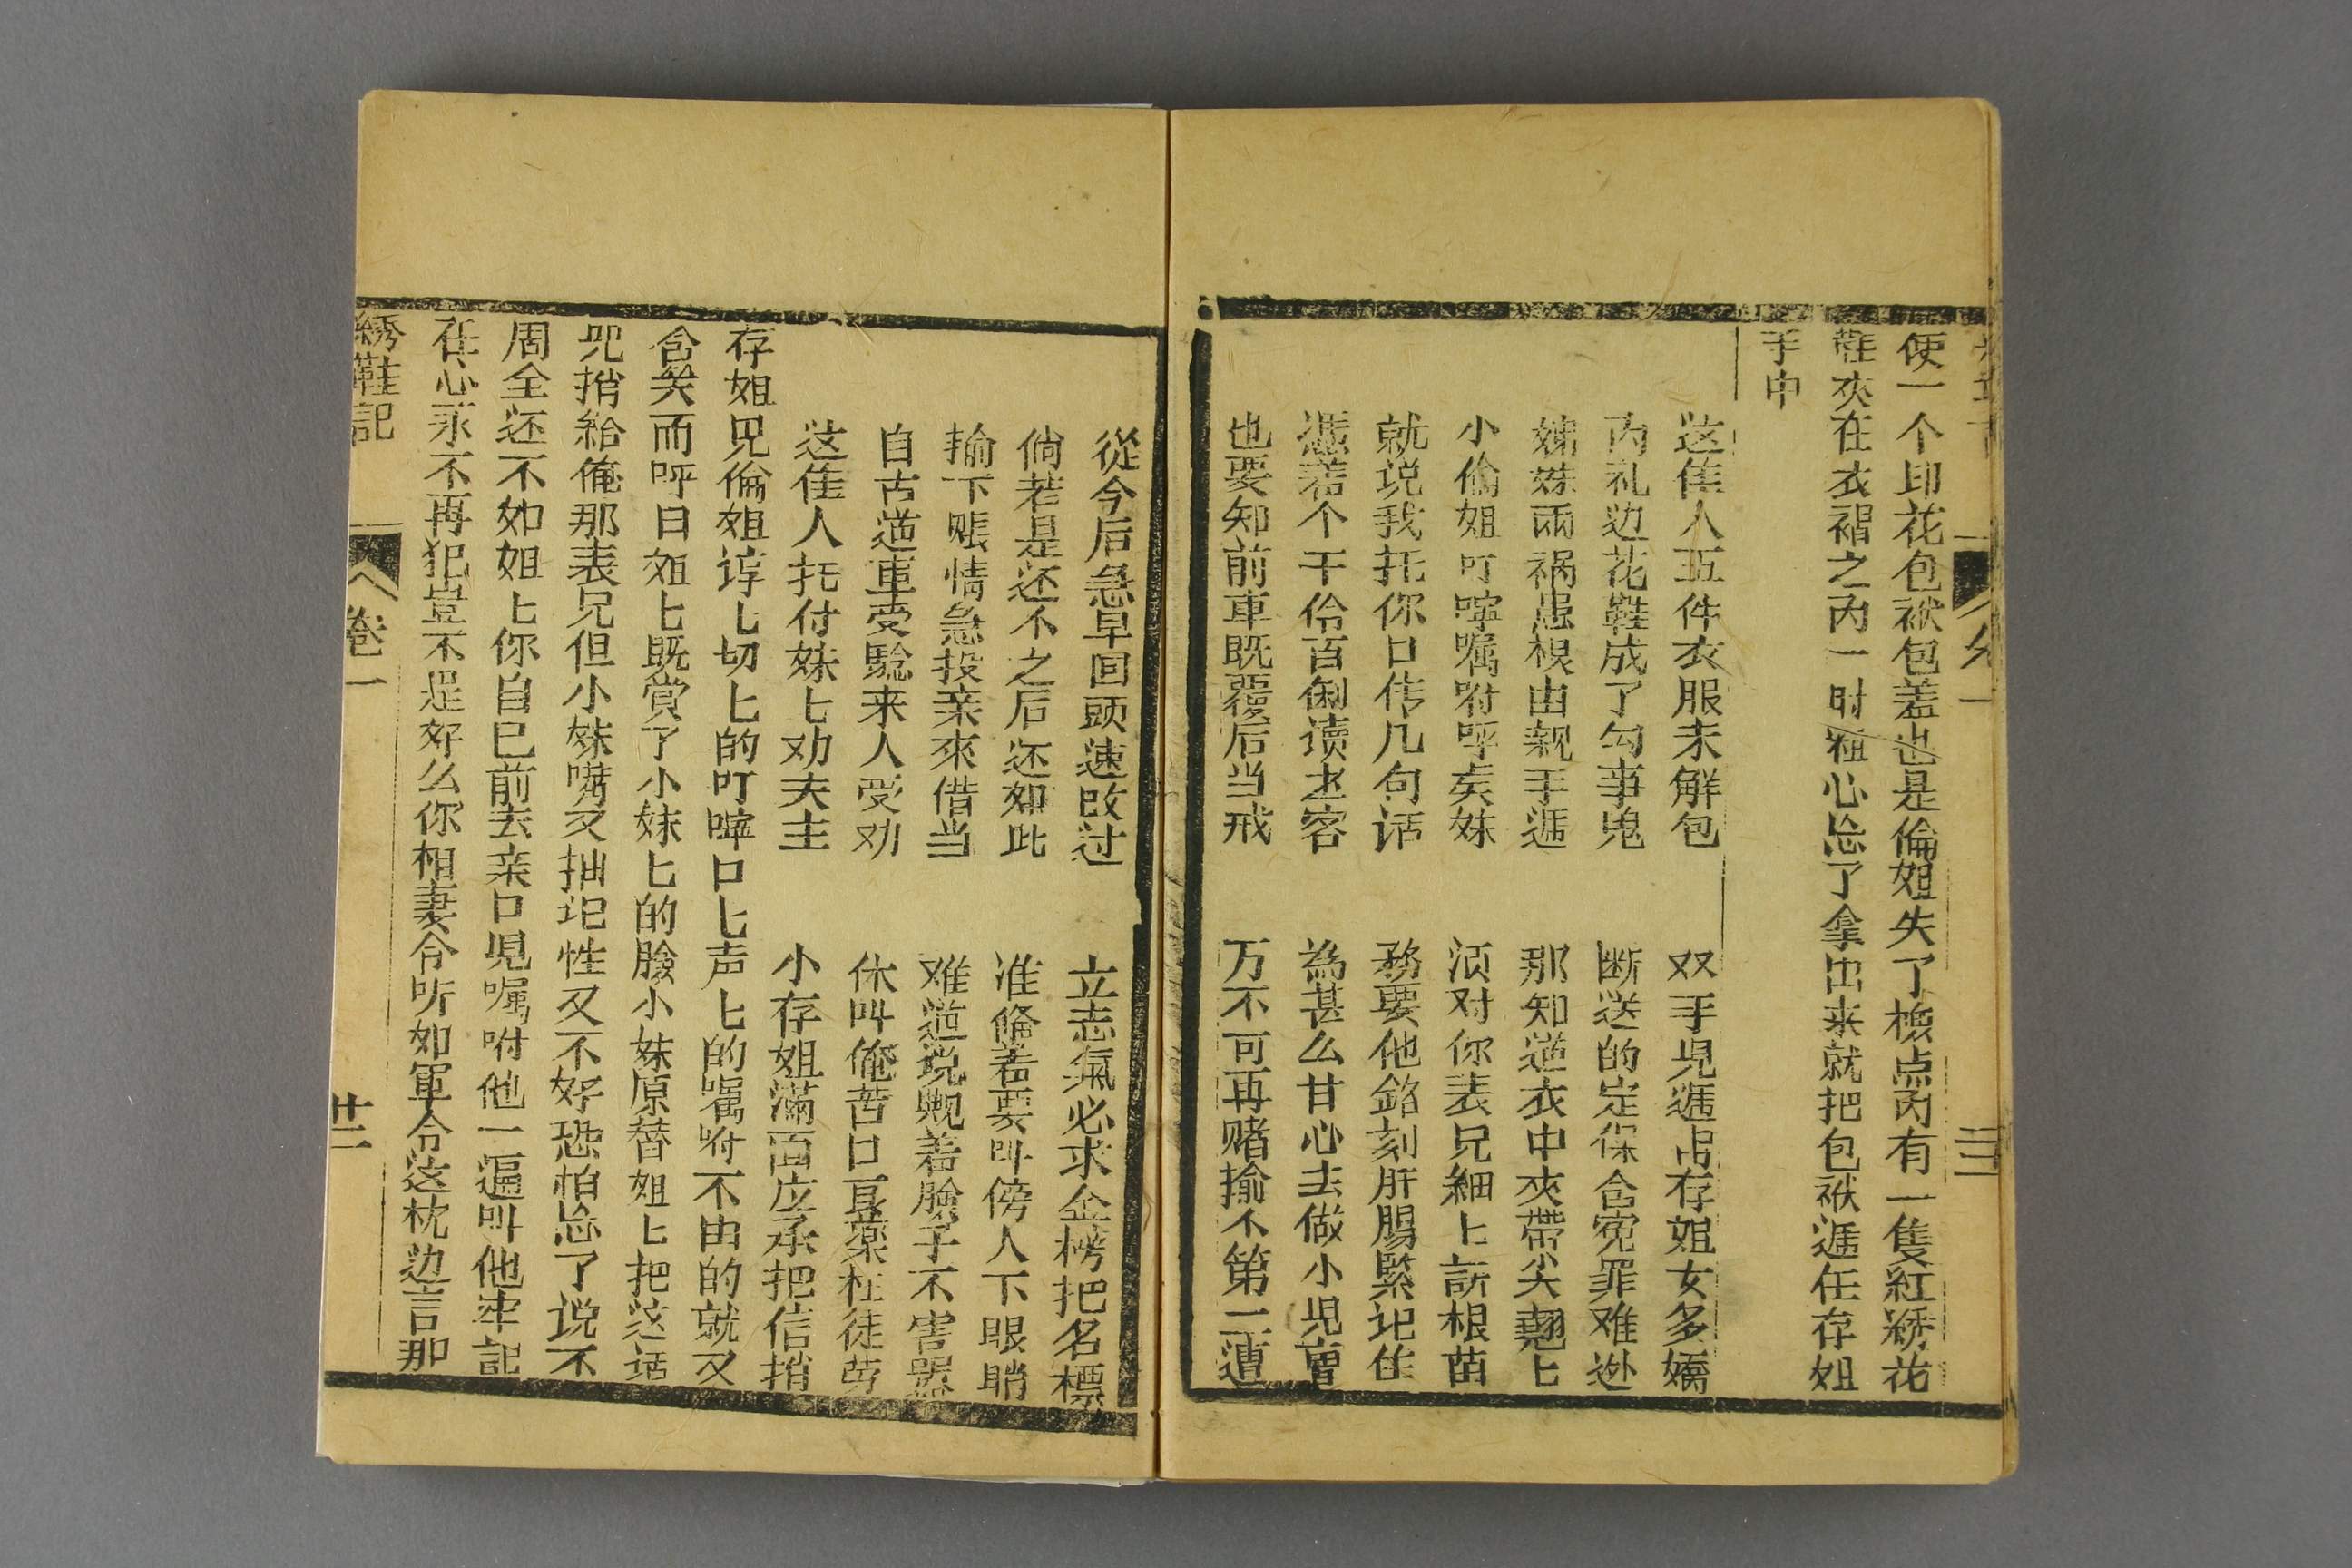 便一个印花包袱包羞也是倫姐失了檢点內有一隻紅綉花
鞋夾在衣褶之內一时粗心忘了拿出来就把包袱遞在存姐
手中
这佳人五件衣服未解包　双手児遞占存姐女多嬌
內礼边花鞋成了勾事鬼　断送的定保含冤罪难逃
姊妹兩祸患根由親手遞　那知道衣中夾帶尖翹匕
小倫姐叮嚀嘱咐呼矣妹　須对你表兄細匕訴根苗
就说我托你口传几句话　務要他銘刻肝腸緊记住
憑若个千伶百俐读书客　為甚么甘心去做小児曹
也要知前車既覆后当戒　万不可再赌揄不第二遭
從今后急早回頭速改过　立志氣必求金榜把名標
倘若是还不之后还如此　准俻若要叫傍人下眼睄
揄下賬情急投亲來借当　难道说覥着臉子不害囂
自古道車受騐来人受劝　休叫俺苦口良藥枉徒劳
这佳人托付妹匕劝夫主　小存姐滿面应承把信捎
存姐見倫姐諄匕切匕的叮嚀口匕声匕的嘱咐不由的就又
含笑而呼曰姐匕既賞了小妹匕的臉小妹原替姐匕把这话
児捎給俺那表兄但小妹嘴又拙记性又不好恐怕忘了说不
周全还不如姐匕你自己前去亲口児嘱咐他一遍叫他牢記
在心永不再犯豈不是好么你相妻令听如軍令这枕边言那
綉鞋記
卷一
廿二